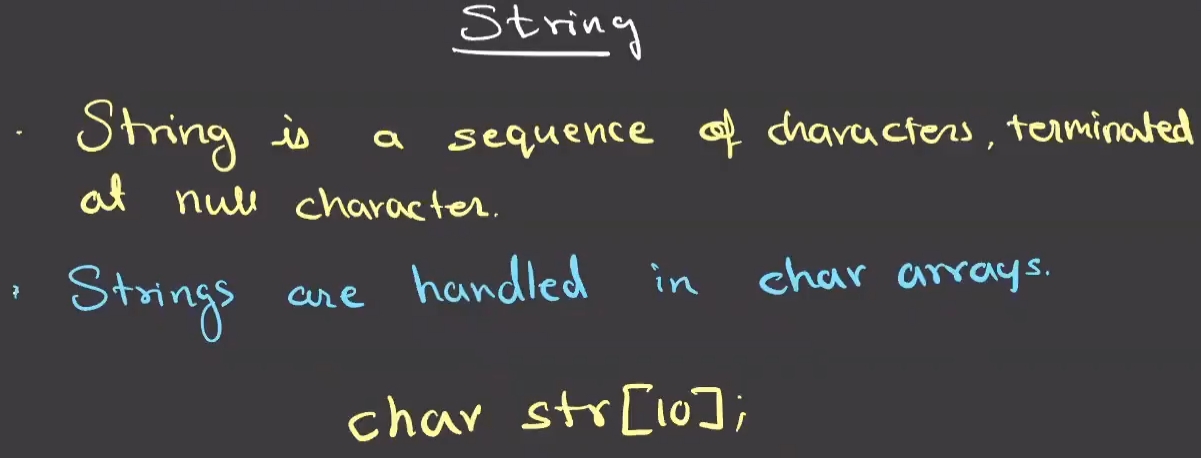 String
· String is a sequence of characters, terminated
at null character.
· Strings are handled in char arrays.
char str[10];